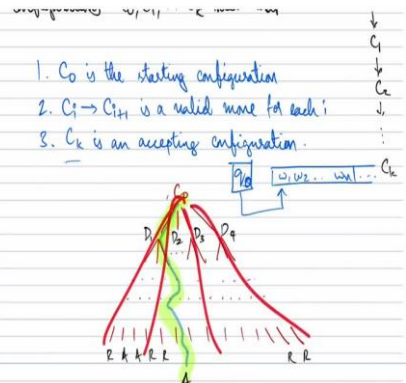 C₁
1. C₀ is the starting configuration
C₂
2. Cᵢ → Cᵢ₊₁ is a valid move for each i
3. Cₖ is an accepting configuration.
q₀ w₁ w₂ ... wₙ ... Cₖ
C₀
D₁ D₂ D₃ D₄
R A A R R R R
A